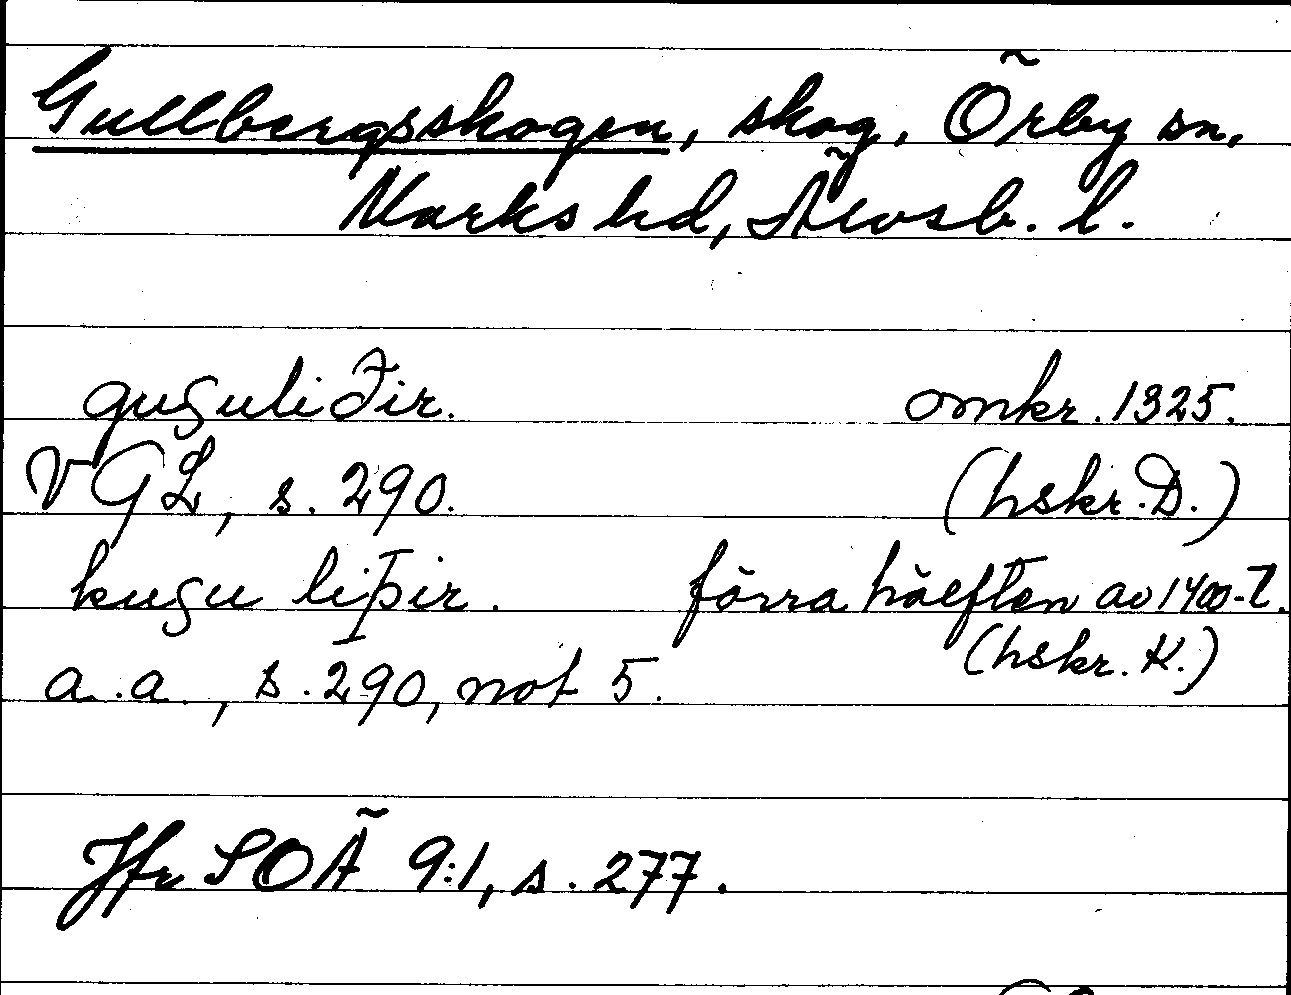 Gullbergsskogen, skog, Örby sn,
Marks hd, Älvsb. l.
guʒuliðir. omkr. 1325.
VGL, s. 290. (hskr. D.)
kuʒu liþir. förra hälften av 1400-t.
(hskr. K.)
a.a., s. 290, not 5.
Jfr SOÄ 9:1, s. 277.